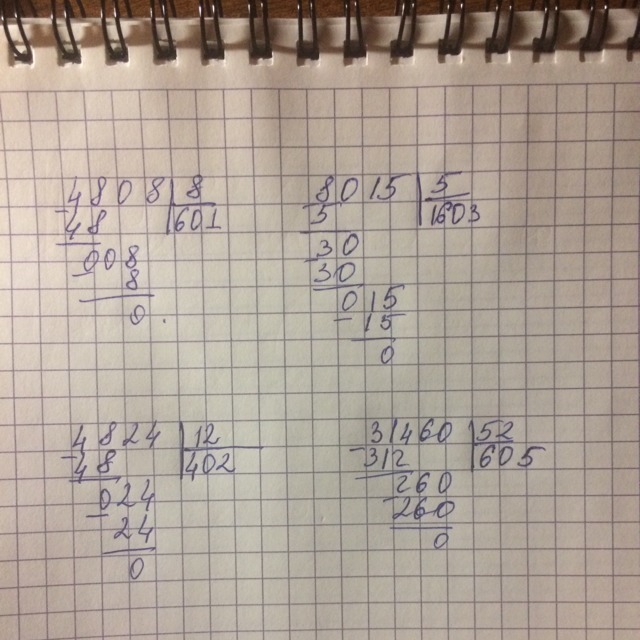 4808 | 8
48 | 601
008
8
0
8015 | 5
5 | 1603
30
30
015
15
0
4824 | 12
48 | 402
024
24
0
31460 | 52
312 | 605
260
260
0